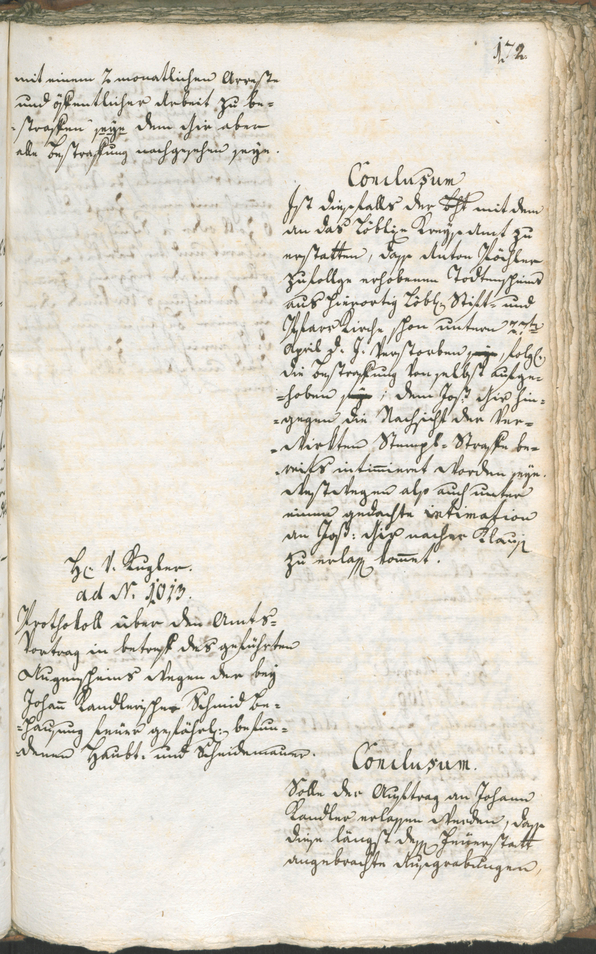 172
mit einem 2 monatlichen Arrest
und öffentlicher Arbeit zu be-
-straffen seye, dem Chir aber
alle Bestraffung nachgesehen seye.
Conclusum
Ist diesfalls der Bht mit dem
an das Löbliche Kreysamt zu
erstatten, dass Anton Köchler
zufolge erhobenen Todtenscheins
aus hierortig Löbl. Stift- und
Pfarr Kirche schon unterm 27ten
April d. J. verstorben, folgl.
die Bestraffung von selbst aufge-
-hoben; dem Jos. Chir hin-
-gegen die Nachsicht der ver-
-wirkten Stempl-Straffe be-
-reits intimieret worden seye.
Westwegen also auch unter
einem gedachte intimation
an Jos: Chir nacher Klaus
zu erlass. kommet.
H. v. Kugler.
ad N. 1013.
Prothokoll über den Amts-
Vortrag in betreff des geführten
Augenscheins wegen der bey
Johann Kandlerischer Schmid Be-
-hausung feuer gefährl. befun-
-denen Haubt- und Scheidemauer.
Conclusum.
Solle der Auftrag an Johann
Kandler erlassen werden, dass
diese längst der Feuerstatt
angebrachte Ausgrabungen,